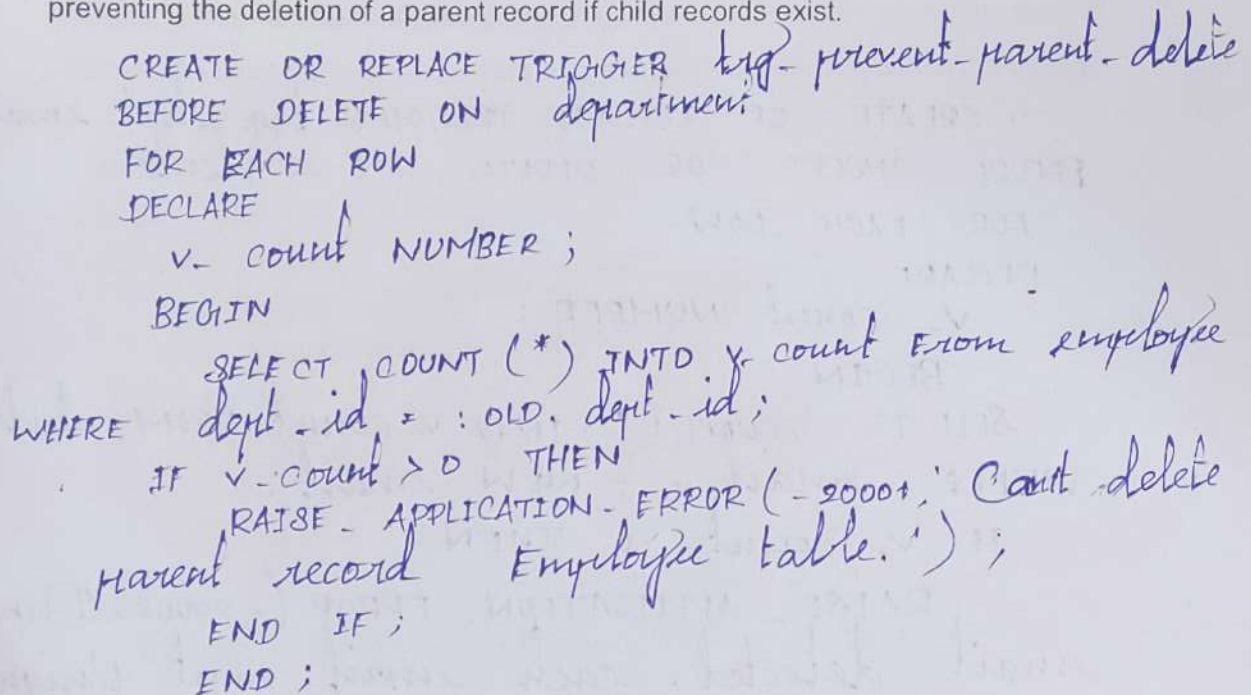 preventing the deletion of a parent record if child records exist.
CREATE OR REPLACE TRIGGER trg_prevent_parent_delete
BEFORE DELETE ON department
FOR EACH ROW
DECLARE
v_count NUMBER;
BEGIN
SELECT COUNT (*) INTO v_count From employee
WHERE dept_id = :OLD.dept_id;
IF v_count > 0 THEN
RAISE_APPLICATION_ERROR (-20001, 'Cant delete
parent record Employee table.');
END IF;
END;